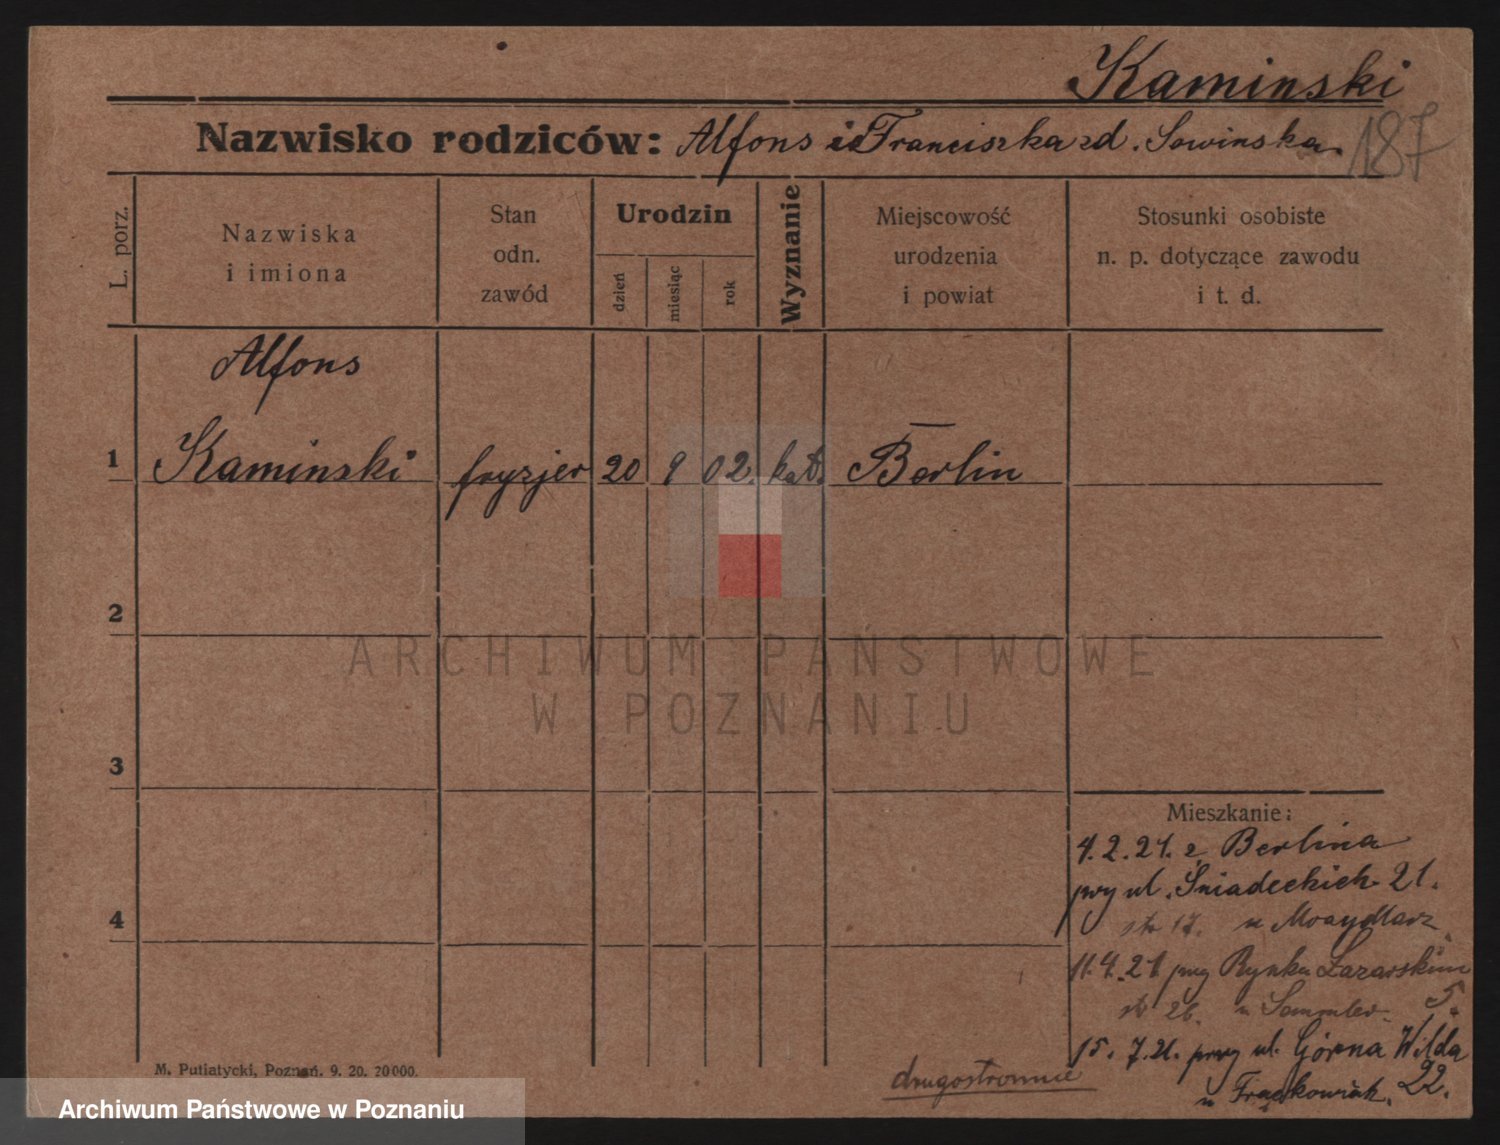 Kaminski
Nazwisko rodziców: Alfons i Franciszka zd. Sowinska.
187
L. porz.
Nazwiska
i imiona
Stan
odn.
zawód
Urodzin
dzień
miesiąc
rok
Wyznanie
Miejscowość
urodzenia
i powiat
Stosunki osobiste
n. p. dotyczące zawodu
i t. d.
Alfons
1 Kaminski fryzjer 20 9 02. kat. Berlin
2
3
4
Mieszkanie:
4.2.21. z Berlina
przy ul. Śniadeckich 21.
str 17. u
11.4.21 przy Rynku Łazarskim
5.
str 26. u
15.7.21. przy ul. Górna Wilda
22.
u Frąckowiak.
drugostronnie
M. Putiatycki, Poznań. 9. 20. 20000.
ARCHIWUM PAŃSTWOWE
W POZNANIU
Archiwum Państwowe w Poznaniu